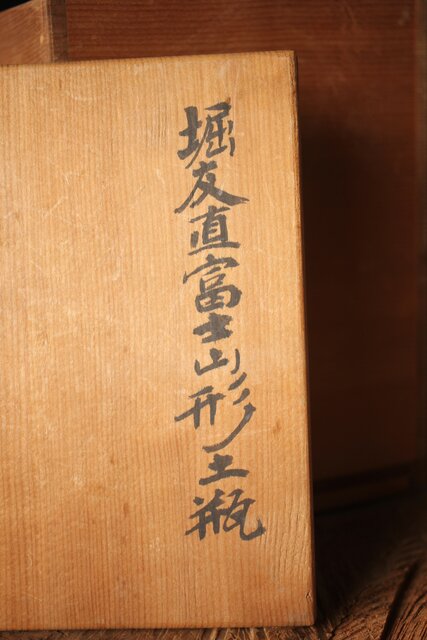 堀友直富士山形土瓶